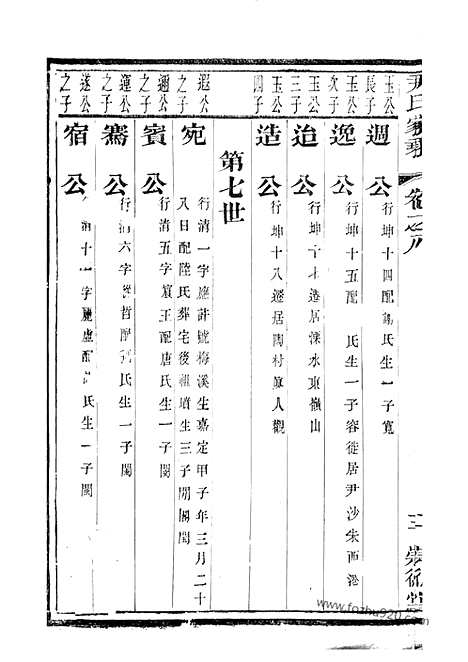 尹氏家乘
卷之八
玉公
長子
週公
行坤十四配楊氏生一子寬
玉公
次子
逸公
行坤十五配 氏生一子容徙居尹沙朱西港
玉公
三子
迨公
行坤十七遷居溧水東嶺山
玉公
四子
造公
行坤十八遷居陶村真人觀
第七世
遐公
之子
宛公
行清一字應詳號梅溪生嘉定甲子年三月二十
八日配陸氏葬宅後祖墳生三子開閣閏
邇公
之子
賓公
行清五字
王配唐氏生一子閔
運公
之子
騫公
行清六字
哲配
氏生一子閩
遂公
之子
宿公
行清十一字
虛配
氏生一子閾
三
www.fozhu920.com